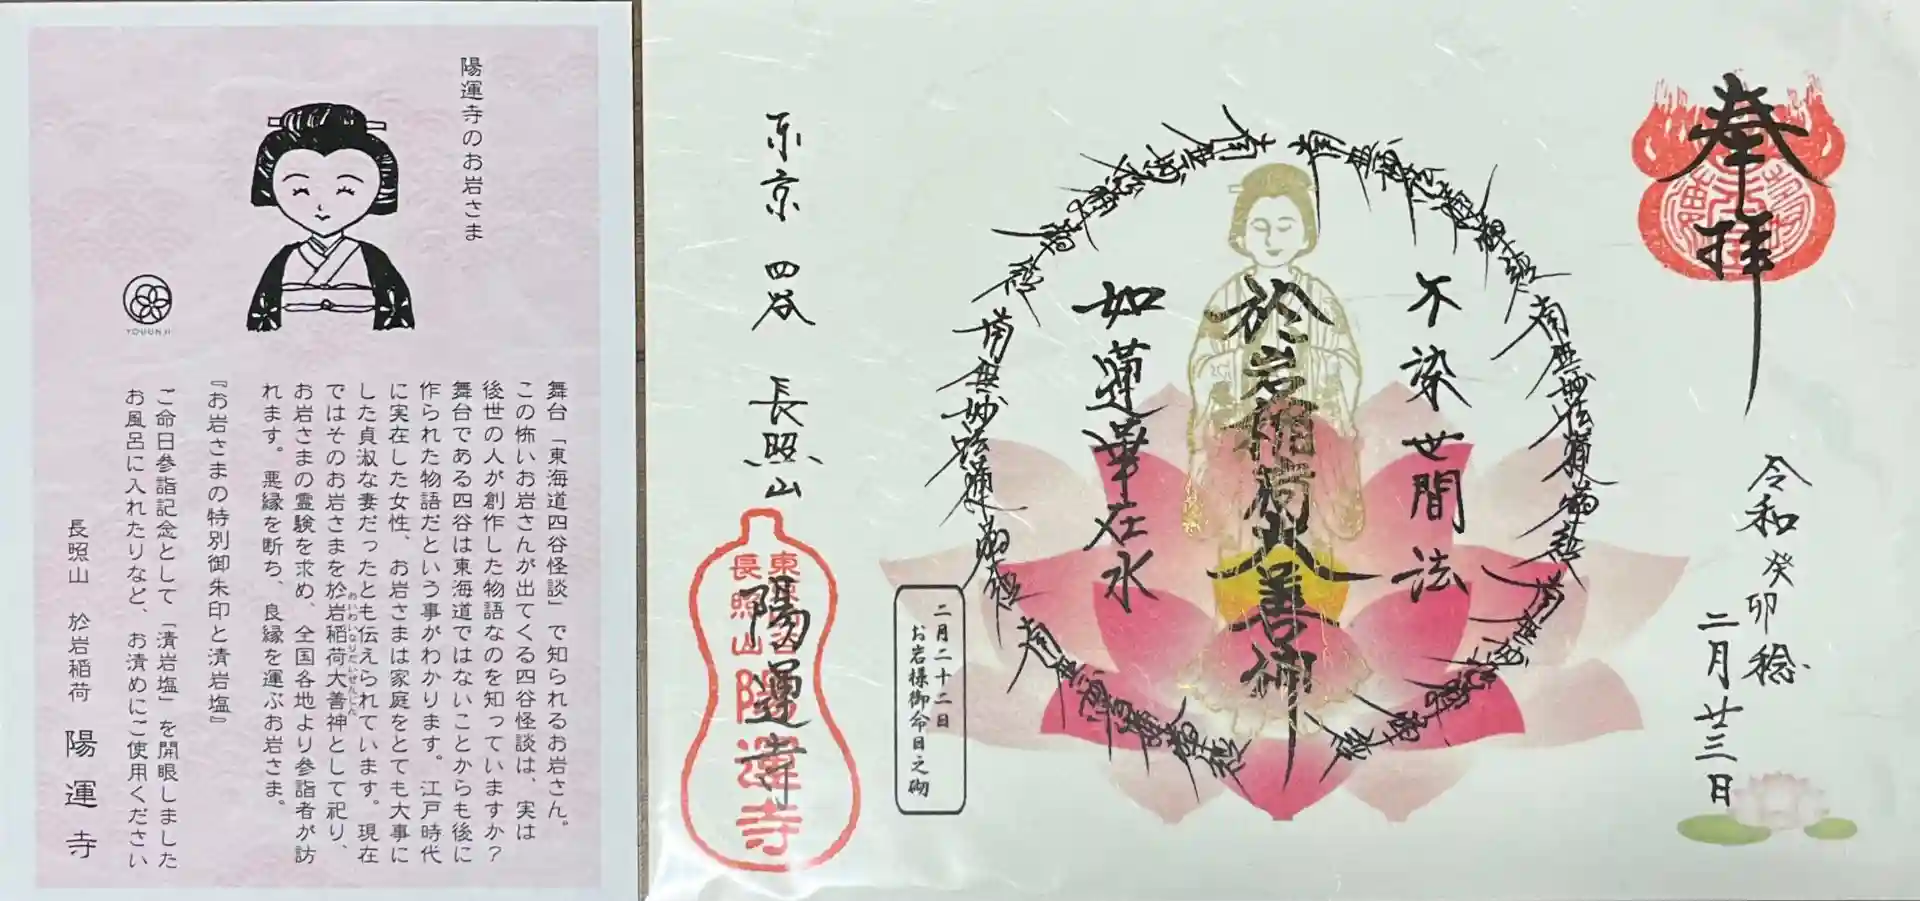 陽運寺のお岩さま
YOUUNJI
舞台「東海道四谷怪談」で知られるお岩さん。
この怖いお岩さんが出てくる四谷怪談は、実は
後世の人が創作した物語なのを知っていますか？
舞台である四谷は東海道ではないことからも後に
作られた物語だという事がわかります。江戸時代
に実在した女性、お岩さまは家庭をとても大事に
した貞淑な妻だったとも伝えられています。現在
ではそのお岩さまを於岩稲荷大善神として祀り、
おいわいなりだいぜんじん
お岩さまの霊験を求め、全国各地より参詣者が訪
れます。悪縁を断ち、良縁を運ぶお岩さま。
『お岩さまの特別御朱印と清岩塩』
ご命日参詣記念として「清岩塩」を開眼しました
お風呂に入れたりなど、お清めにご使用ください
長照山 於岩稲荷 陽運寺
奉拝
令和癸卯稔
二月廿三日
不染世間法
於岩稲荷大善神
如蓮華在水
南無妙法蓮華経
二月二十二日
お岩様御命日之砌
東京 四谷 長照山
陽運寺
長照山
陽運寺